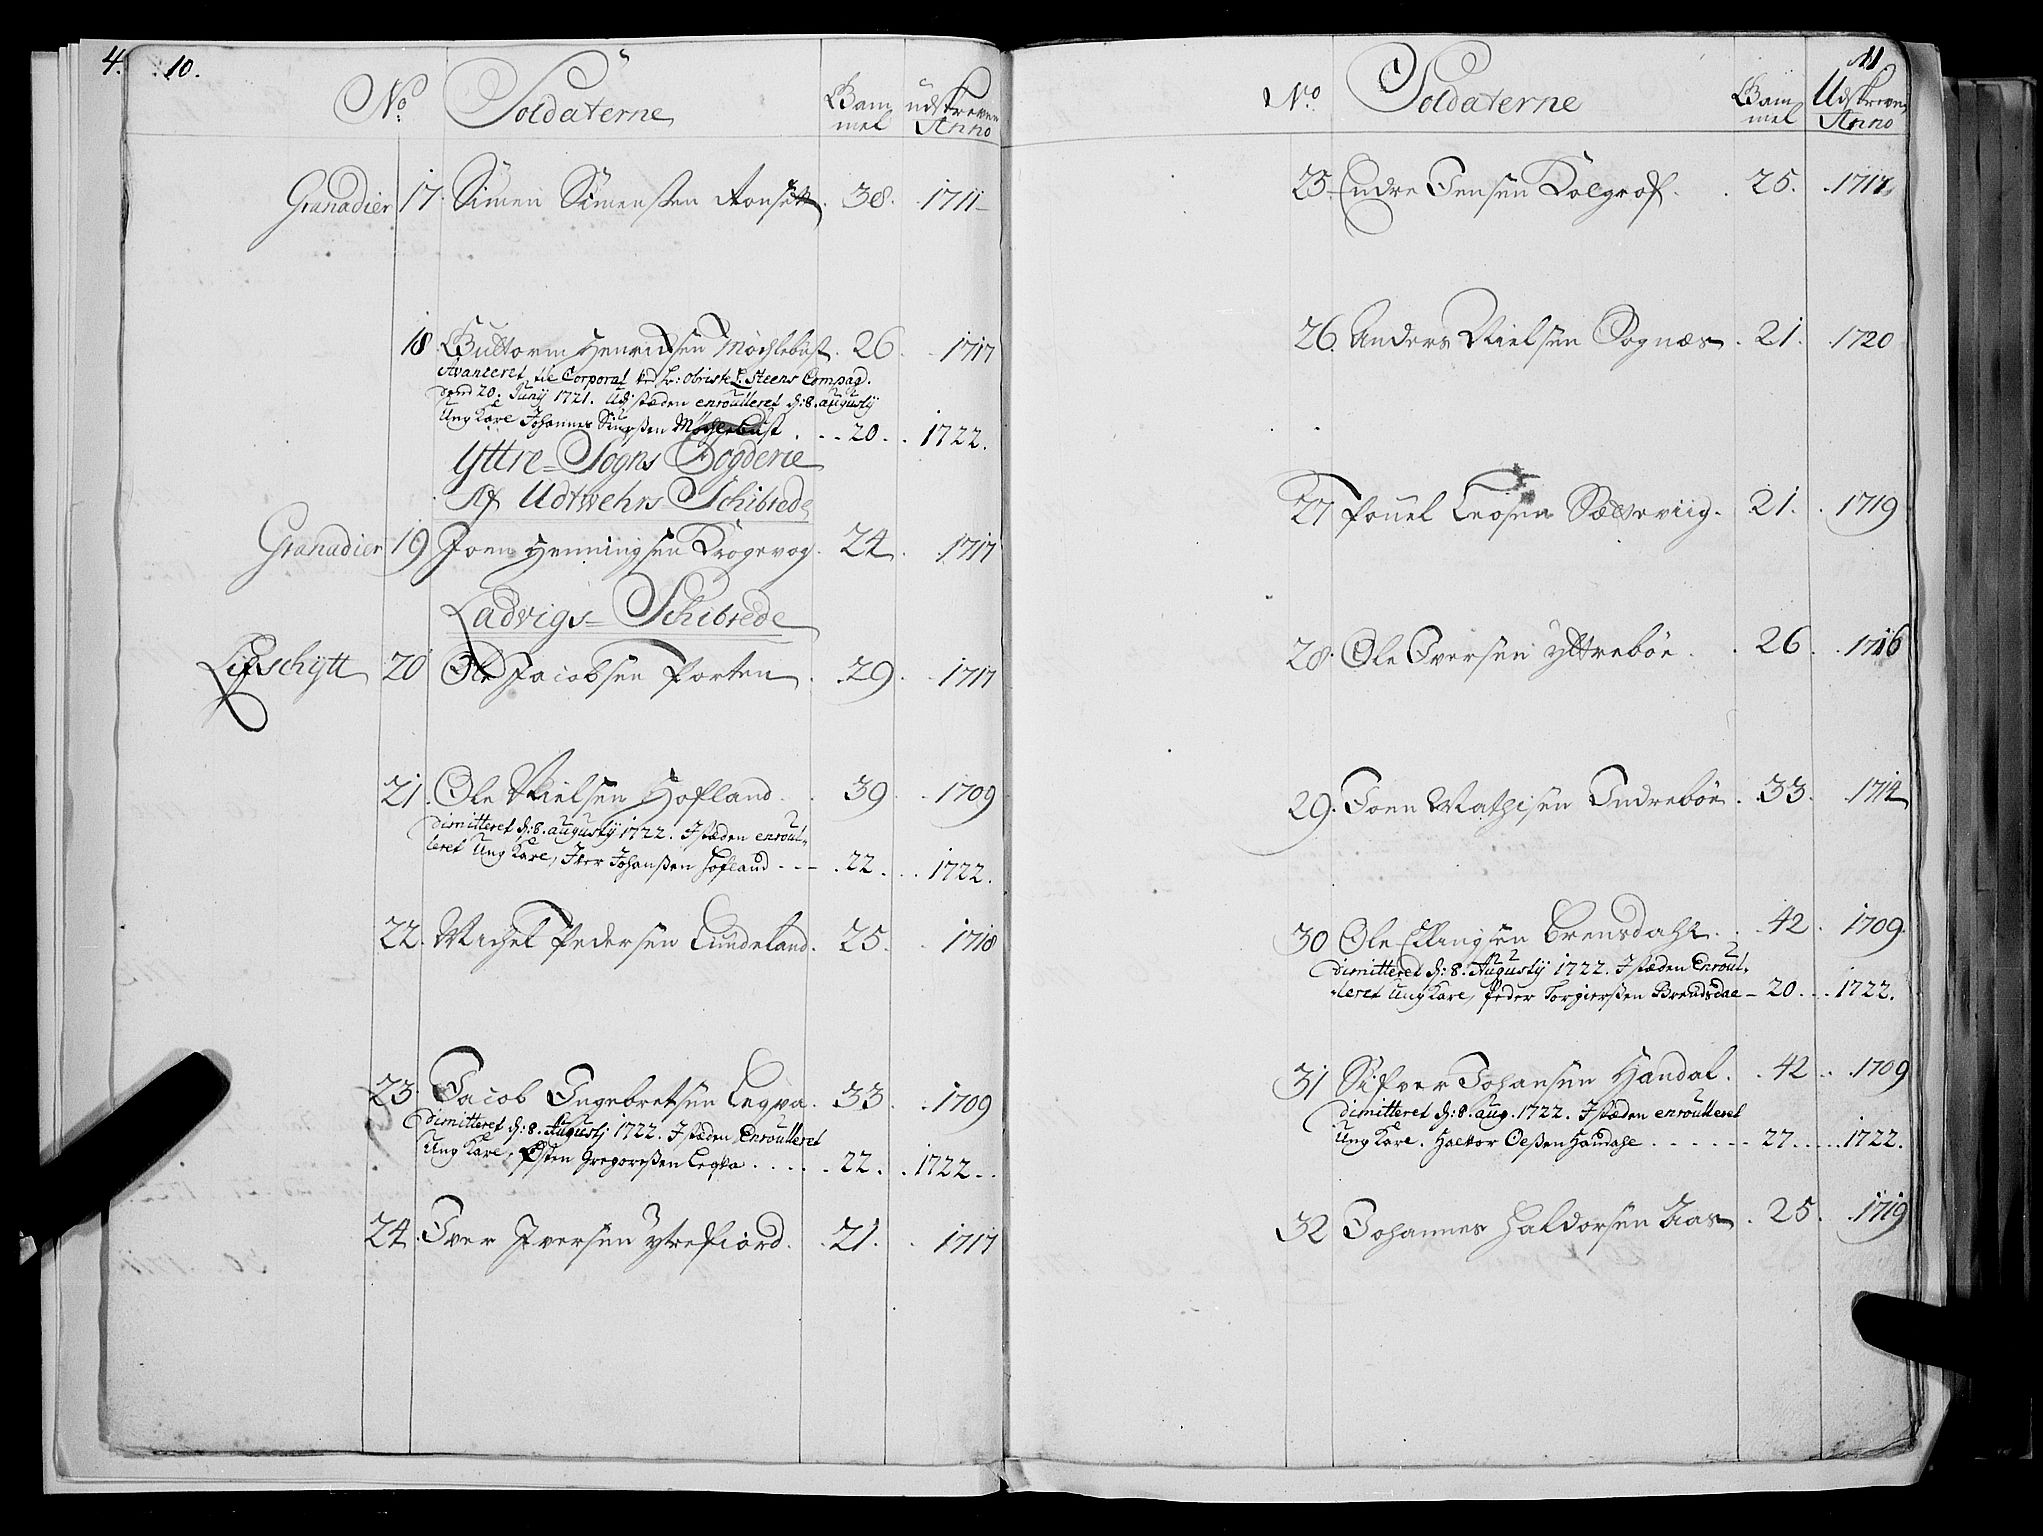 4. 10.
No. Soldaterne Gam mel udskreven Anno
Granadier 17. Simen Simensen 38. 1711
18. Guttorm Henrichsen Møchlebust. 26. 1717
Avanceret til Corporal ved Lt: Obriste L. Steens Compag.
dend 20. Junij 1721. Udj stæden enroulleret d: 8. augustij
Ung Karl Johannes Møchlebust 20. 1722.
Yttre-Sogns Fogderie
Af Udtwehrs-Schibrede
Granadier 19 Joen Henningsen Krogevog. 24. 1717
Ladvigs-Schibrede
Lifschytt 20 Ole Jacobsen Porten. 29. 1717
21. Ole Nielsen Hofland. 39. 1709
dimitteret d: 8. augustij 1722. I stæden enroul-
leret Ung Karl, Iver Johanssen Hofland --- 22. 1722.
22. Michel Pedersen Lundeland. 25. 1718
23. Jacob Ingebretsen Leqva. 33. 1709
dimitteret d: 8. Augustj 1722. I stæden Enroulleret
Ung Karl, Østen Gregorssen Leqva 22. 1722.
24. Iver Iversen ytrefiord. 21. 1717
11
No. Soldaterne Gam mel Udskreven Anno
25. Endre Jensen Kolgrof. 25. 1717
26. Anders Nielsen Sognæs. 21. 1720
27 Pouel Leosen Sætterviig. 21. 1719
28. Ole Iversen yttrebøe. 26. 1716
29. Joen Mathisen Indrebøe. 33. 1714
30 Ole Ellingsen Brensdahl. 42. 1709.
dimitteret d: 8. Augustij 1722. I stæden Enroul-
leret Ung Karl, Peder Torgierssen Brendsdal - 20. 1722.
31 Sifver Johansen Handal. 42. 1709
dimitteret d: 8. aug. 1722. I stæden enroulleret
Ung Karl. Olssen Handahl 27. 1722.
32 Johannes Haldorsen Aas. 25. 1719